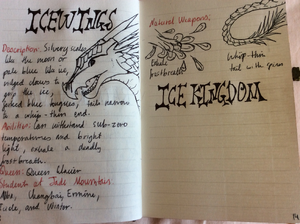 ICEWINGS
Description: Silvery scales
like the moon or
pale blue like ice;
ridged claws to
grip the ice;
forked blue tongues; tails narrow
to a whip-thin end.
Abilities: Can withstand sub-zero
temperatures and bright
light, exhale a deadly
frostbreath.
Queen: Queen Glacier
Students at Jade Mountain:
Alba, Changbai, Ermine,
Icicle, and Winter.
Natural Weapons:
Exhale
frostbreath
Whip-thin
tail with spines
ICE KINGDOM